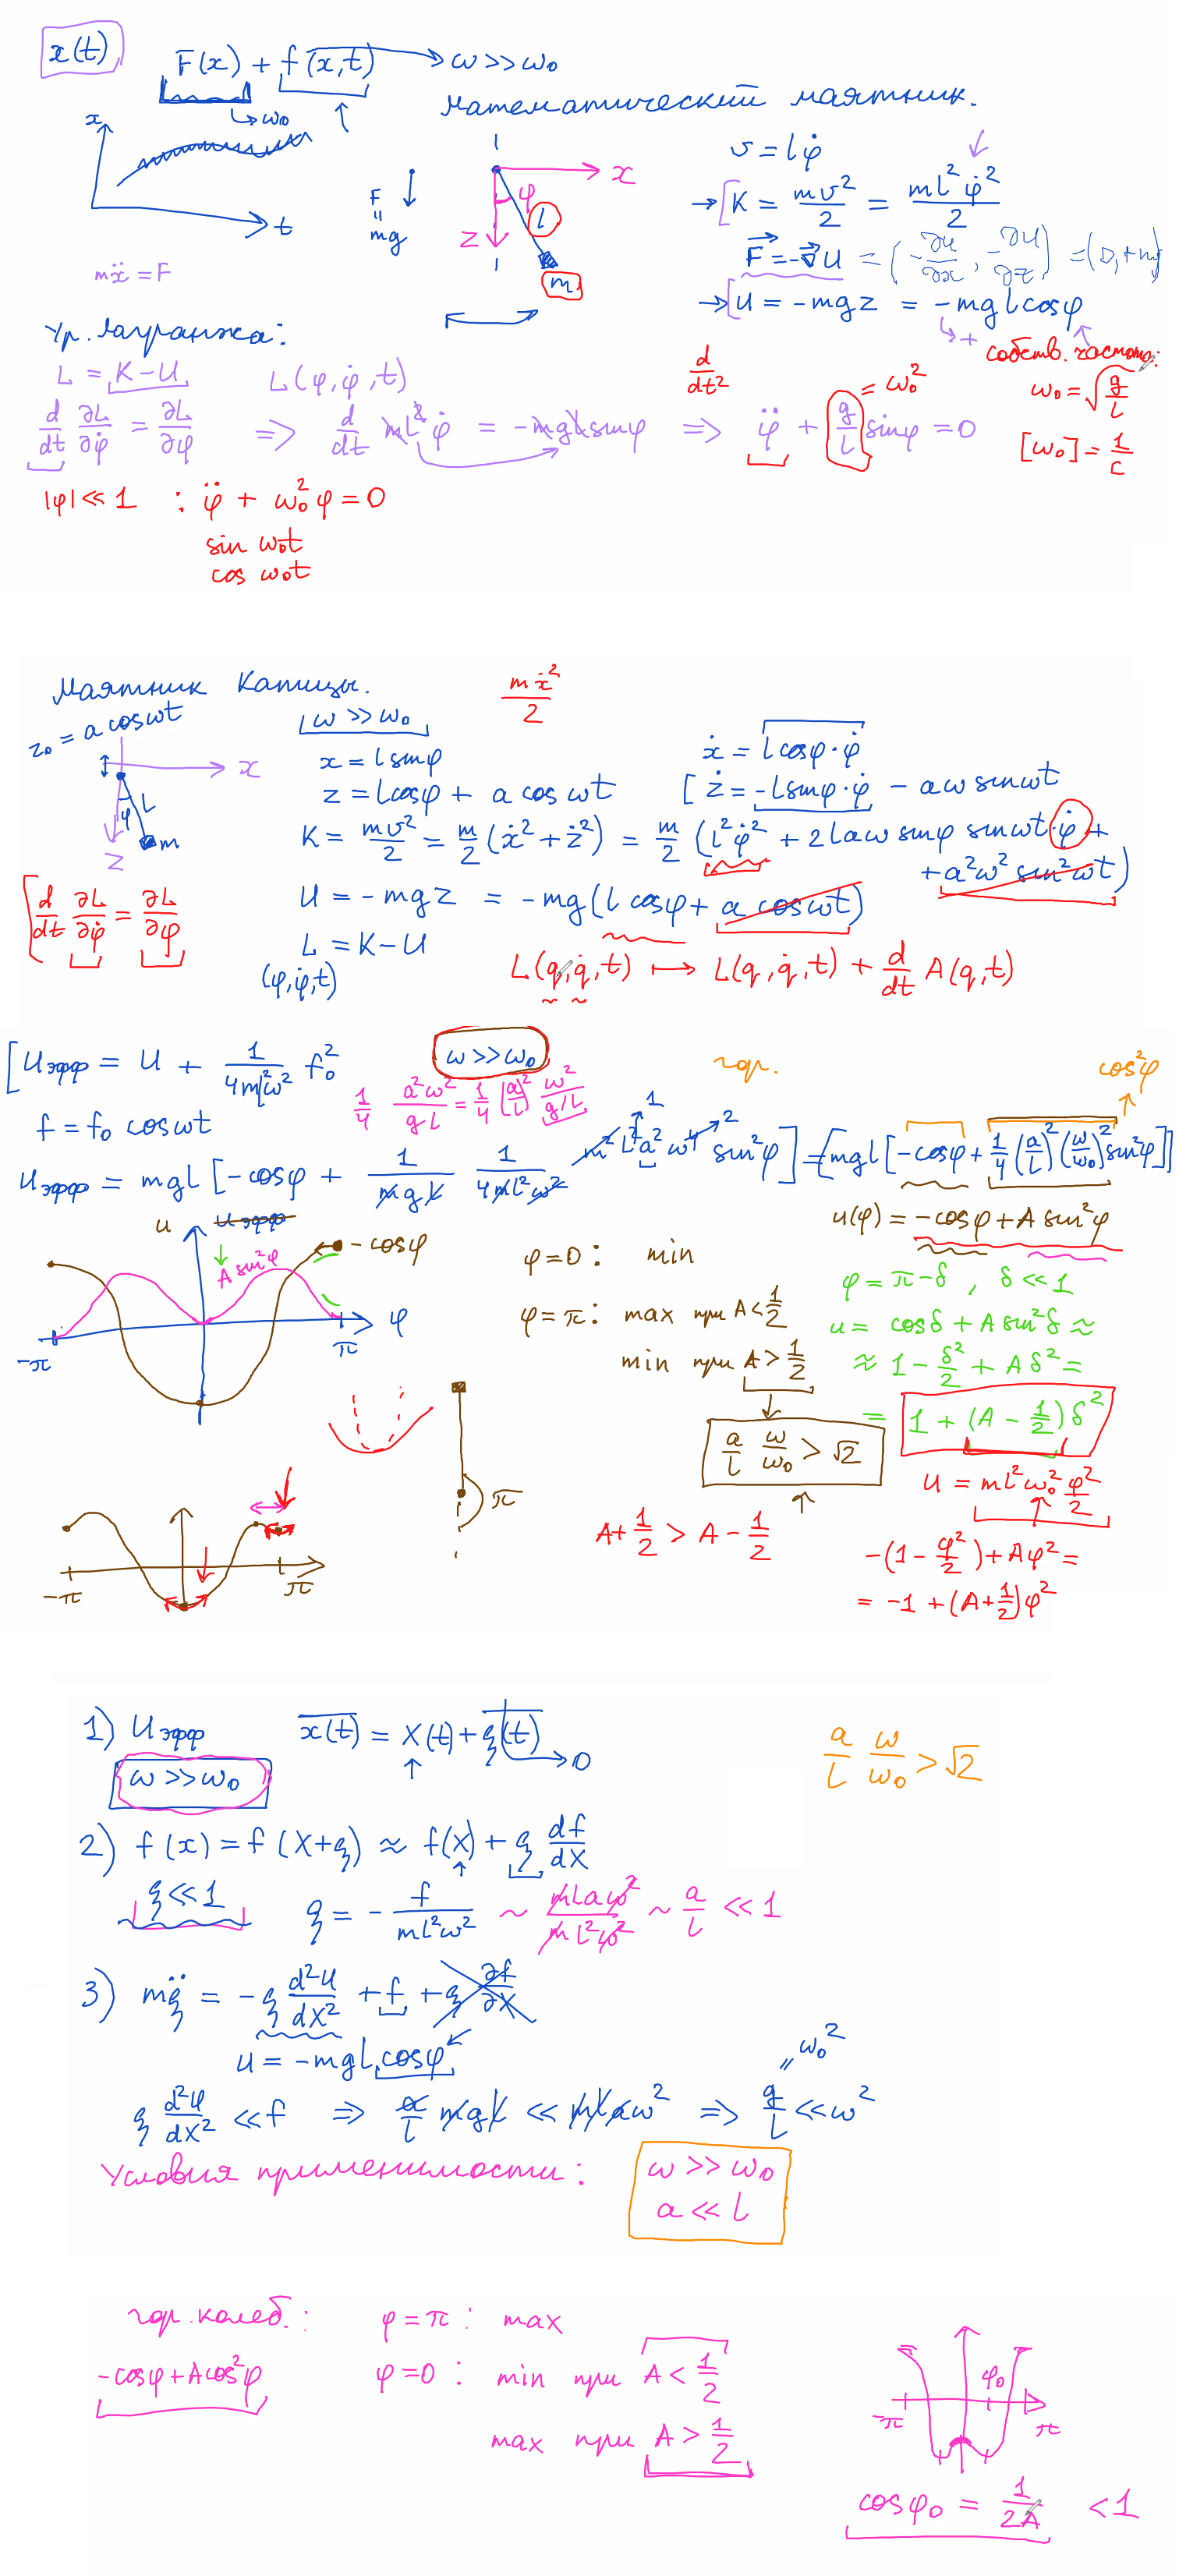 x(t)
F(x) + f(x,t) → ω >> ω₀
↳ω₀
математический маятник.
x
t
mẍ = F
F
॥
mg
x
φ
l
z
m
v = lφ̇
→ K = mv²/2 = ml²φ̇²/2
F⃗ = -∇⃗U = (-∂U/∂x, -∂U/∂z) = (0, +mg)
→ U = -mgz = -mgl cosφ
↳ +
Ур. Лагранжа:
L = K - U
L(φ, φ̇, t)
d/dt²
= ω₀²
собств. частота:
ω₀ = √(g/l)
d/dt ∂L/∂φ̇ = ∂L/∂φ => d/dt ml²φ̇ = -mgl sinφ => φ̈ + g/l sinφ = 0
[ω₀] = 1/с
|φ| << 1 : φ̈ + ω₀²φ = 0
sin ω₀t
cos ω₀t
Маятник Капицы.
mẋ²/2
z₀ = a cosωt
x
l
φ
m
z
ω >> ω₀
x = l sinφ
ẋ = l cosφ·φ̇
z = l cosφ + a cos ωt
ż = -l sinφ·φ̇ - aω sinωt
K = mv²/2 = m/2 (ẋ² + ż²) = m/2 (l²φ̇² + 2laω sinφ sinωt·φ̇ +
+ a²ω² sin²ωt)
d/dt ∂L/∂φ̇ = ∂L/∂φ
U = -mgz = -mg(l cosφ + a cosωt)
L = K - U
(φ, φ̇, t)
L(q, q̇, t) ↦ L(q, q̇, t) + d/dt A(q, t)
[Uэфф = U + 1/(4ml²ω²) f₀²
ω >> ω₀
гор.
cos²φ
f = f₀ cosωt
1/4 a²ω²/gl = 1/4 (a/l)² ω²/(g/l)
1
2
Uэфф = mgl [-cosφ + 1/mgl 1/(4ml²ω²) m²l²a²ω⁴ sin²φ] = mgl [-cosφ + 1/4 (a/l)² (ω/ω₀)² sin²φ]
u(φ) = -cosφ + A sin²φ
u
Uэфф
A sin²φ
-cosφ
φ
-π
π
φ = 0 : min
φ = π : max при A < 1/2
min при A > 1/2
a/l ω/ω₀ > √2
φ = π - δ, δ << 1
u = cosδ + A sin²δ ≈
≈ 1 - δ²/2 + Aδ² =
= 1 + (A - 1/2)δ²
π
U = ml²ω₀² φ²/2
A + 1/2 > A - 1/2
-(1 - φ²/2) + Aφ² =
= -1 + (A + 1/2)φ²
-π
π
1) Uэфф
x(t) = X(t) + ξ(t)
→ 0
ω >> ω₀
a/l ω/ω₀ > √2
2) f(x) = f(X+ξ) ≈ f(X) + ξ df/dX
ξ << 1
ξ = - f/(ml²ω²) ~ mlaω²/(ml²ω²) ~ a/l << 1
3) mξ̈ = -ξ d²U/dX² + f + ξ ∂f/∂X
U = -mgl cosφ
॥ ω₀²
ξ d²U/dX² << f => a/l mgl << mlaω² => g/l << ω²
Условия применимости:
ω >> ω₀
a << l
гор. колеб.:
φ = π : max
-cosφ + A cos²φ
φ = 0 : min при A < 1/2
max при A > 1/2
φ₀
-π
π
cosφ₀ = 1/2A < 1